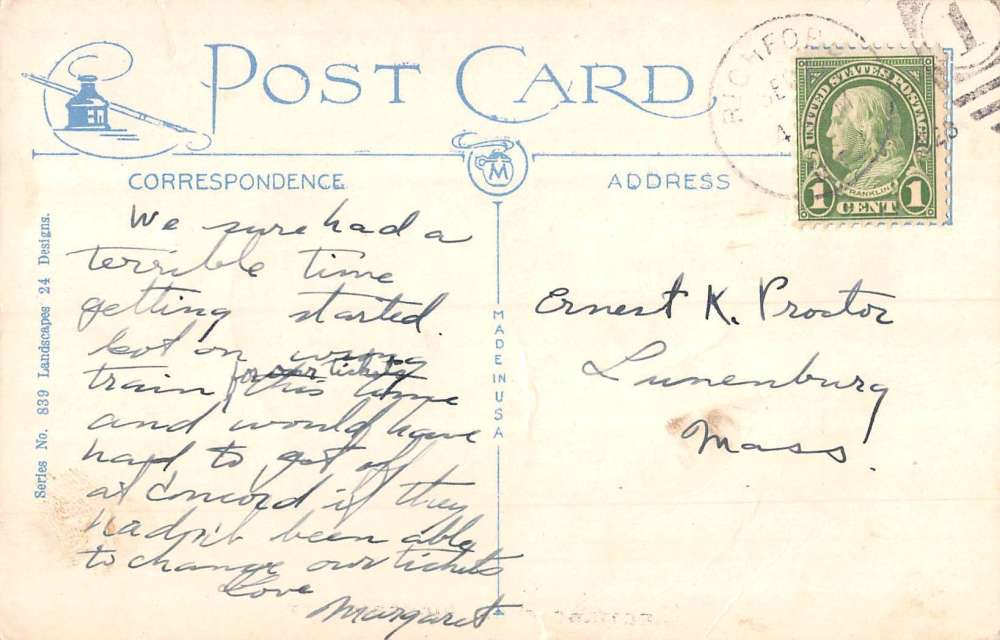 POST CARD
CORRESPONDENCE
ADDRESS
M
RICHFOR
SE
4
1
UNITED STATES POSTAGE
FRANKLIN
1 CENT 1
Series No. 839 Landscapes 24 Designs.
MADE IN USA
We sure had a
terrible time
getting started.
Got on wrong
train for our tickets this time
and would have
had to get off
at Concord if they
hadn't been able
to change our tickets
Love
Margaret
Ernest K. Proctor
Lunenburg
Mass.